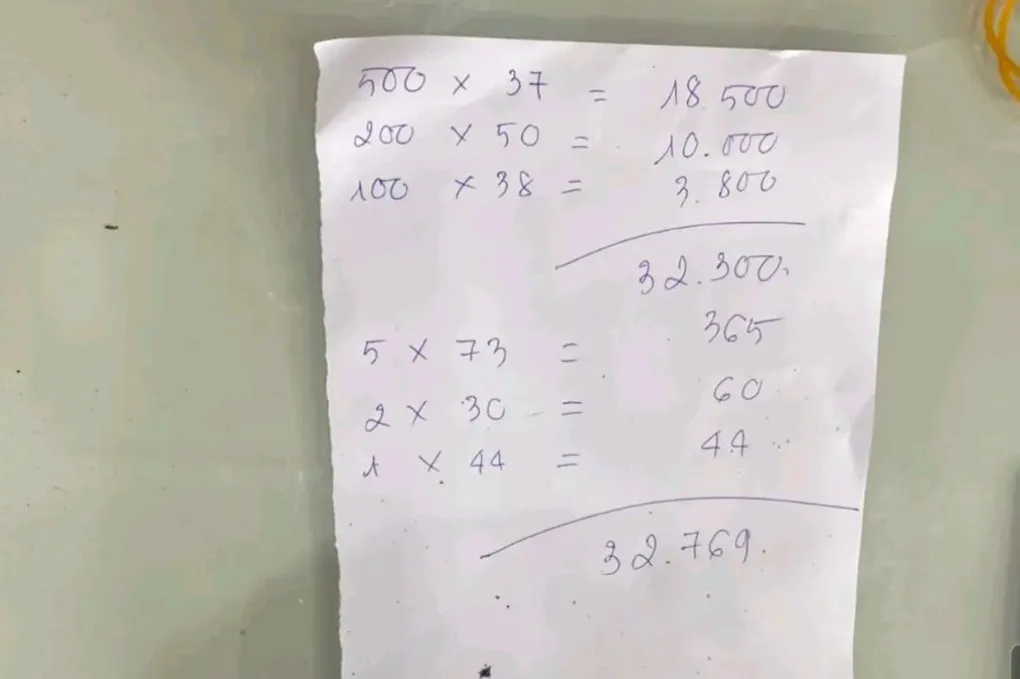 500 × 37 = 18 500
200 × 50 = 10.000
100 × 38 = 3.800
32.300.
5 × 73 = 365
2 × 30 = 60
1 × 44 = 44
32.769.